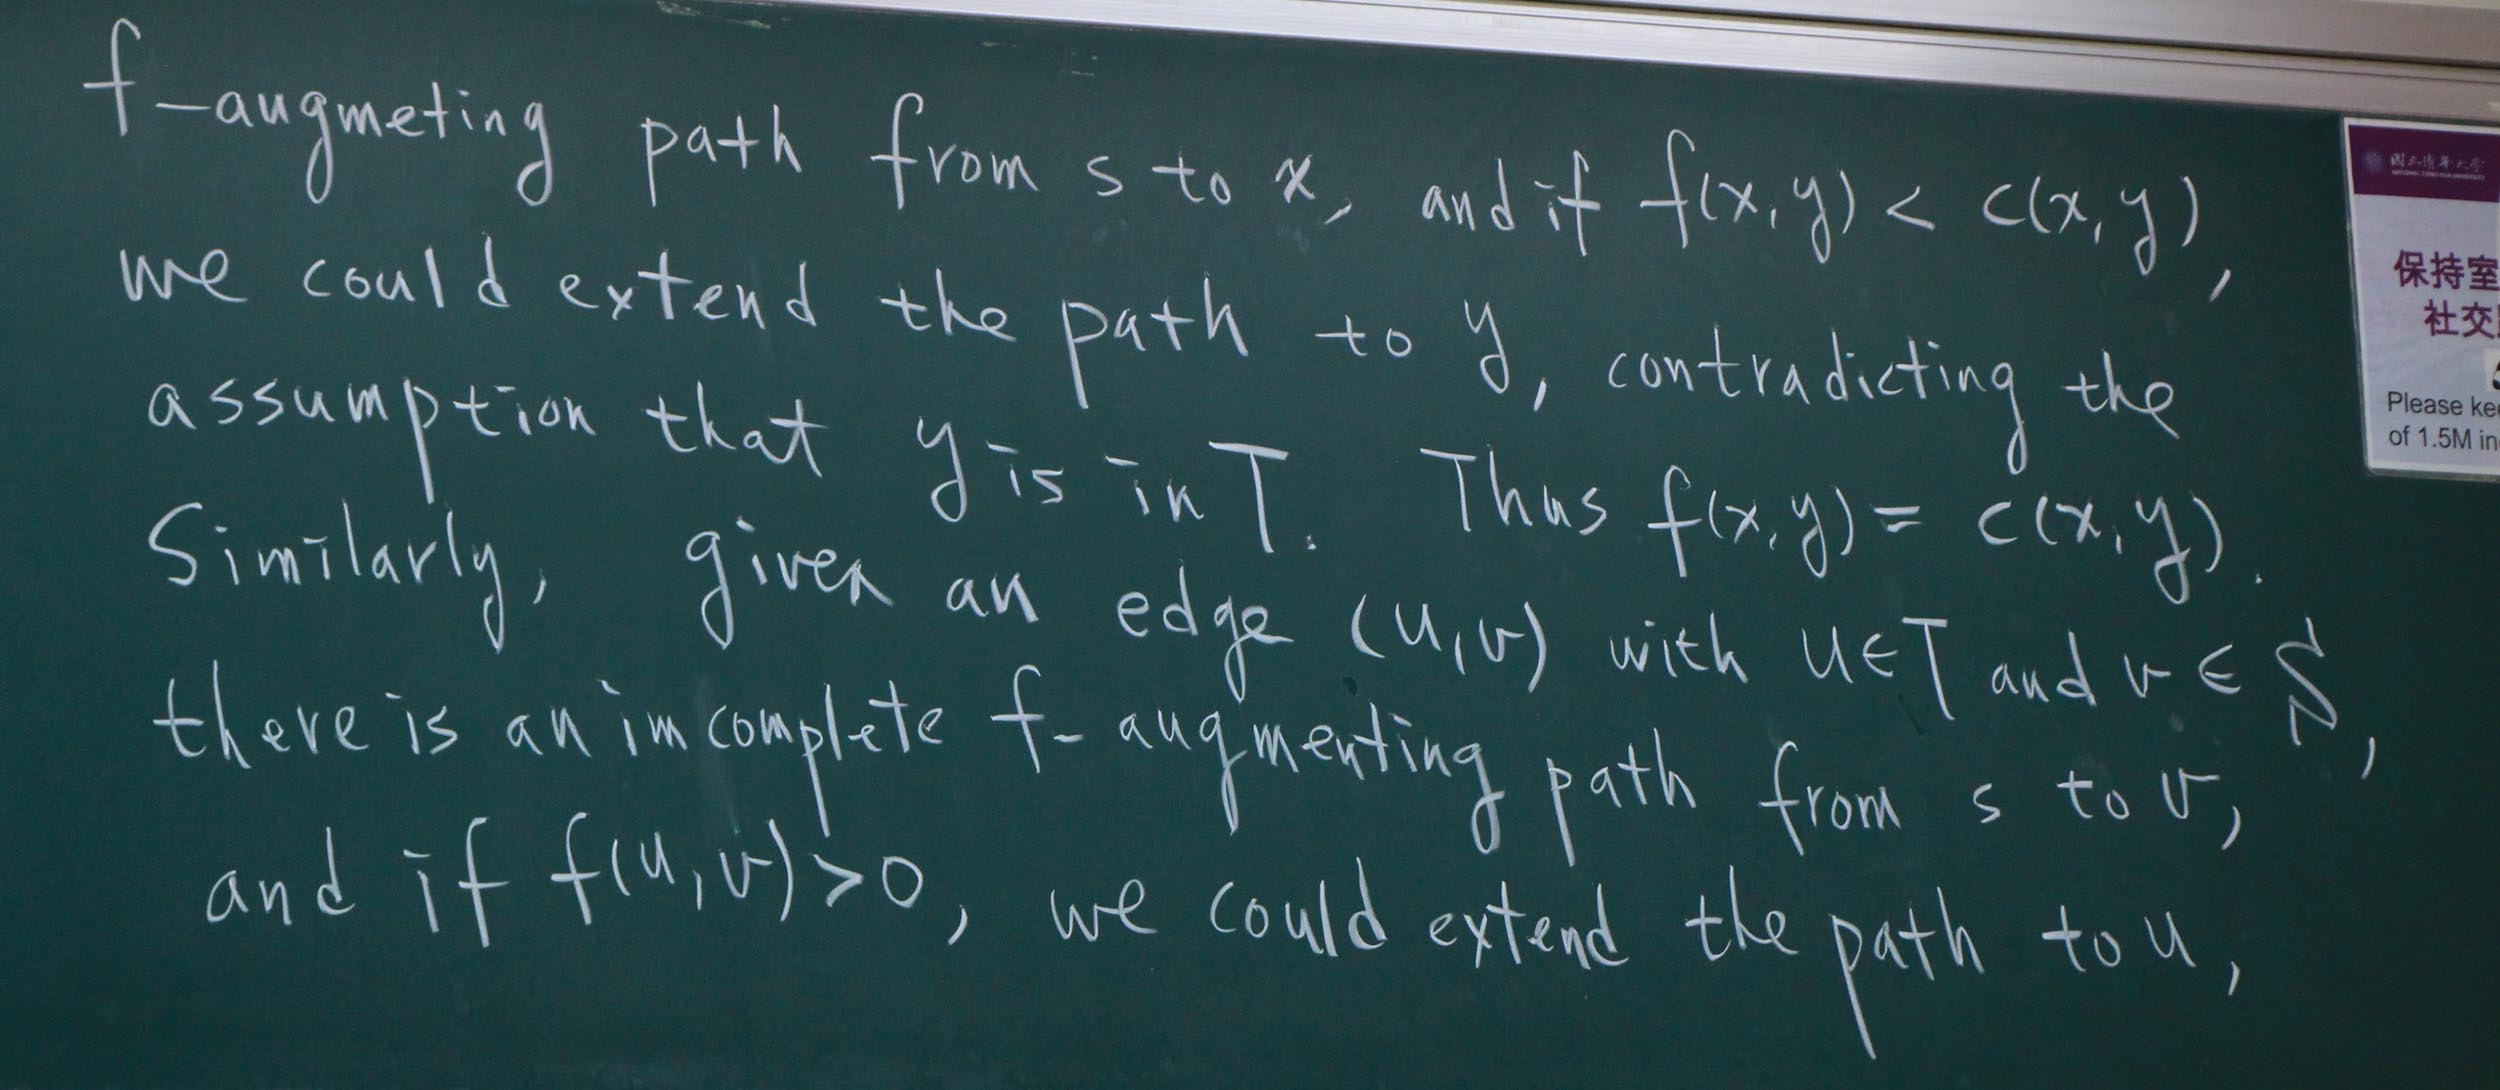 f-augmeting path from s to x, and if f(x,y) < c(x,y),
we could extend the path to y, contradicting the
assumption that y is in T. Thus f(x,y) = c(x,y).
Similarly, given an edge (u,v) with u∈T and v∈S,
there is an imcomplete f-augmenting path from s to v,
and if f(u,v)>0, we could extend the path to u,
國立清華大學
NATIONAL TSING HUA UNIVERSITY
保持室
社交
Please kee
of 1.5M in